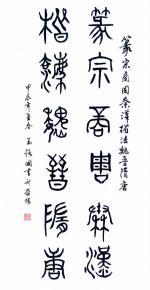 篆宗商周秦漢
楷法魏晉隋唐
篆宗商周秦漢楷法魏晉隋唐
甲辰年孟春